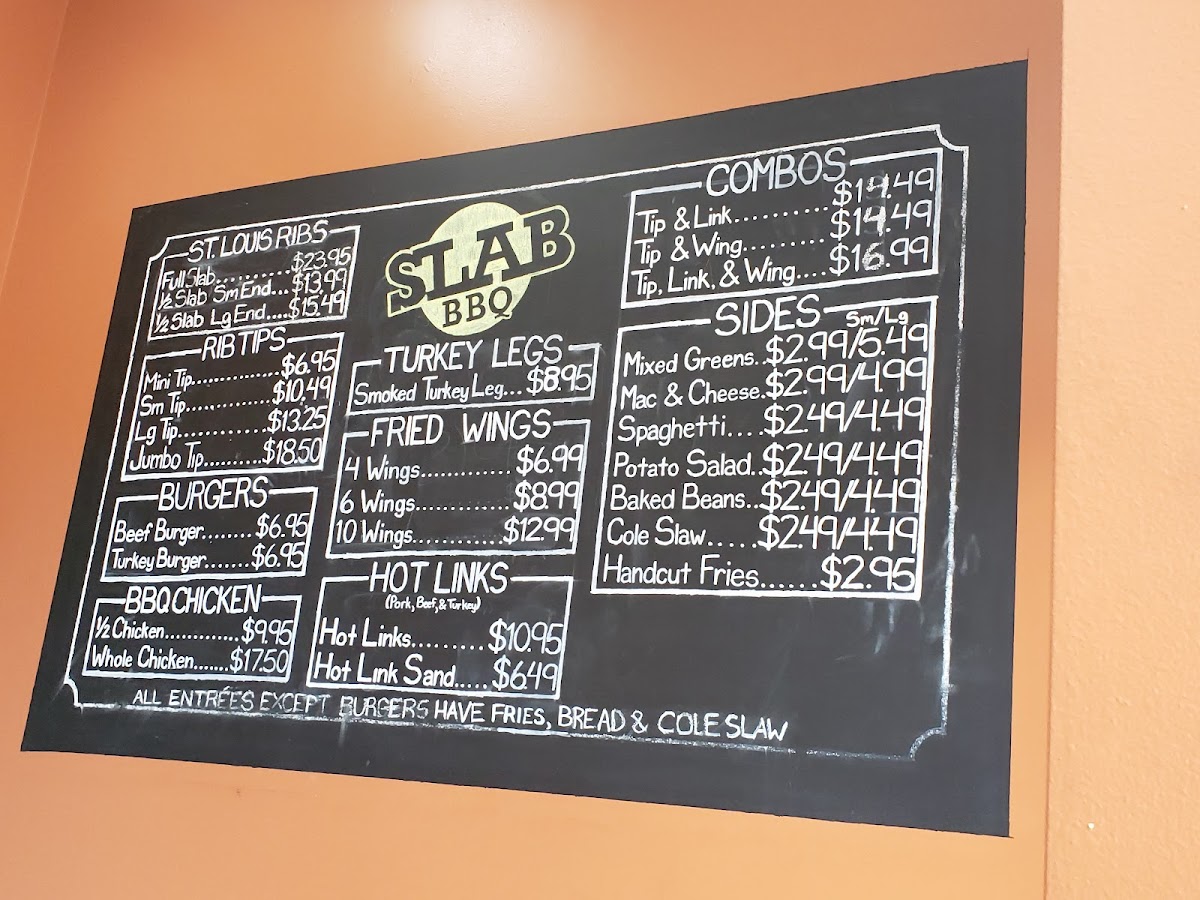 ST. LOUIS RIBS
Full Slab..........$23.95
½ Slab Sm End...$13.99
½ Slab Lg End....$15.49
RIB TIPS
Mini Tip..............$6.95
Sm Tip..............$10.49
Lg Tip..............$13.25
Jumbo Tip..........$18.50
BURGERS
Beef Burger........$6.95
Turkey Burger.......$6.95
BBQ CHICKEN
½ Chicken.............$9.95
Whole Chicken.......$17.50
SLAB
BBQ
TURKEY LEGS
Smoked Turkey Leg...$8.95
FRIED WINGS
4 Wings.............$6.99
6 Wings.............$8.99
10 Wings............$12.99
HOT LINKS
(Pork, Beef, & Turkey)
Hot Links.........$10.95
Hot Link Sand.....$6.49
COMBOS
Tip & Link..........$14.49
Tip & Wing.........$14.49
Tip, Link, & Wing....$16.99
SIDES Sm/Lg
Mixed Greens..$2.99/5.49
Mac & Cheese.$2.99/4.99
Spaghetti....$2.49/4.49
Potato Salad..$2.49/4.49
Baked Beans...$2.49/4.49
Cole Slaw.....$2.49/4.49
Handcut Fries......$2.95
ALL ENTRÉES EXCEPT BURGERS HAVE FRIES, BREAD & COLE SLAW